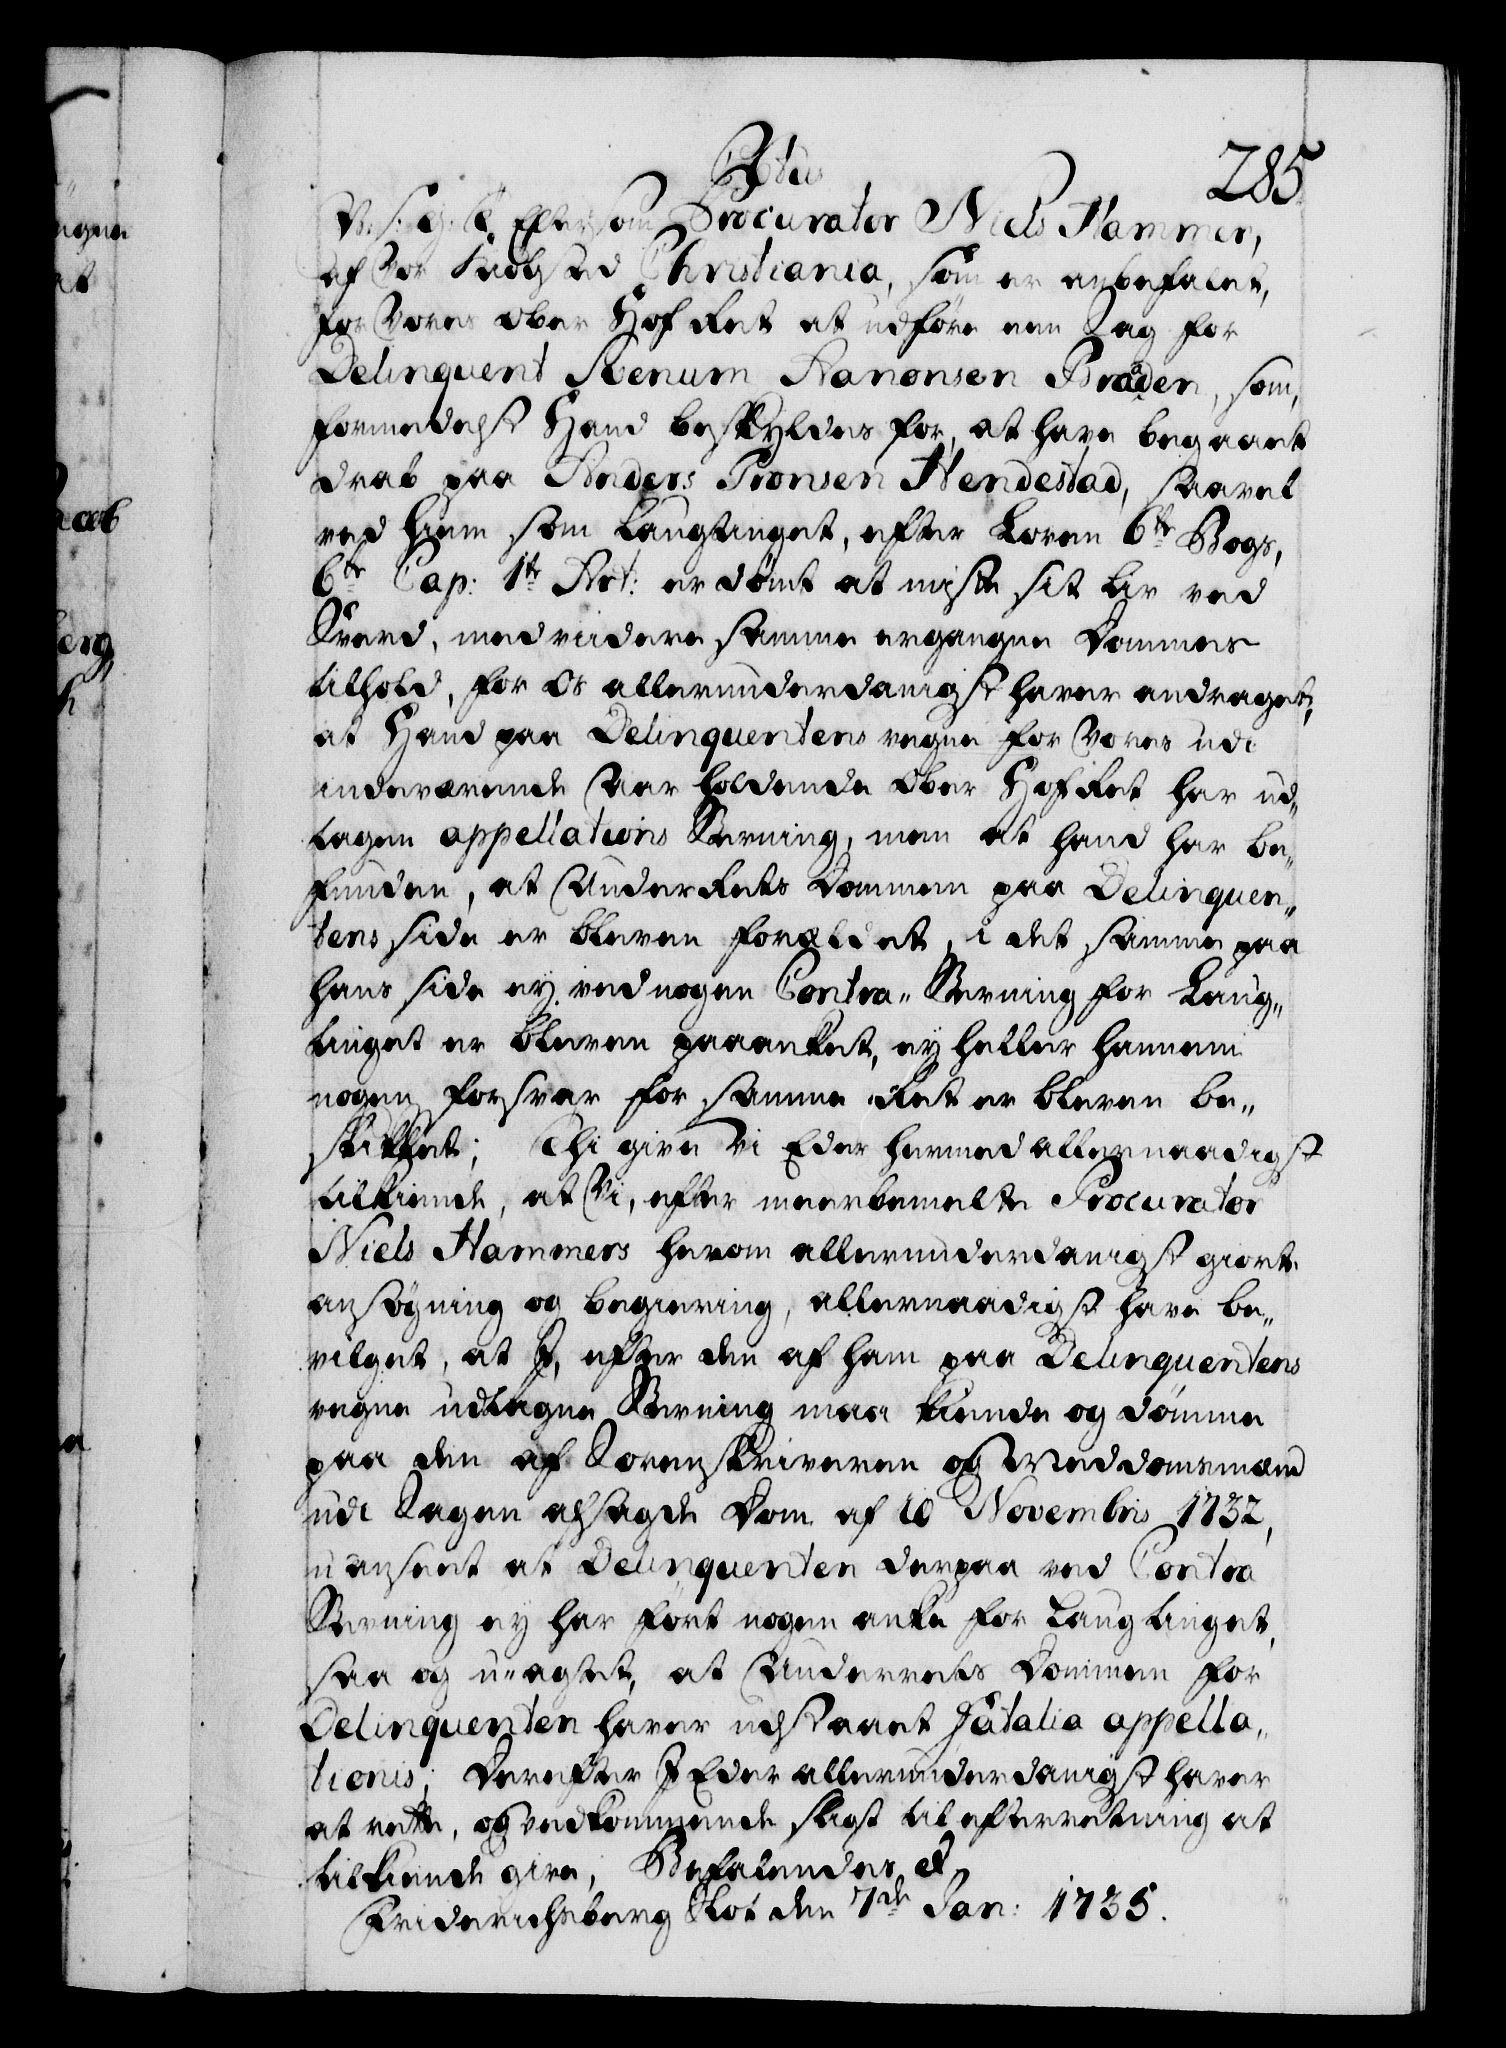 285.
V. s. G. T. Eftersom Procurator Niels Hammer,
af Vor Kiøbsted Christiania, som er anbefalet,
for Vores Ober Hof Ret at udføre een Sag for
Delinquent Stenum Aanonsen Braaden, som,
formedelst Hand beskyldes for, at have begaaet
drab paa Anders Tronsen Hendestad, saavel
ved hiem som Laugtinget, efter Loven 6te Bogs,
6te Cap: 1te Art: er dømt at miste sit liv ved
Sverd, med viidere samme ergangne Dommes
tilhold, for Os allerunderdanigst haver andraget,
at Hand paa Delinquentens vegne for Vores udi
indeværende Aar holdende Ober Hof Ret har ud-
tagen appellations Stevning, men at hand har be-
funden, at Under Rets Dommen paa Delinquen-
tens side er bleven forældet, i det samme paa
hans side ey ved nogen Contra-Stevning for Laug-
tinget er bleven paaanket, ey heller hannem
nogen forsvar for samme Ret er bleven be-
skikket; Thi give Vi Eder hermed allernaadigst
tilkiende, at Vi, efter meerbemelte Procurator
Niels Hammers herom allerunderdanigst giorte
ansøgning og begiering, allernaadigst have be-
vilget, at I, efter den af ham paa Delinquentens
vegne udtagne Stevning maa kiende og dømme
paa den af Sorenskriveren og Meddomsmænd
udi Sagen afsagde Dom af 10 Novembris 1732,
uanseet at Delinquenten derpaa ved Contra
Stevning ey har ført nogen anke for Laugtinget,
saa og u-agtet, at Underrets Dommen for
Delinquenten haver udstaaet fatalia appella-
tionis; Derefter I Eder allerunderdanigst haver
at rette, og vedkommende sligt til efterretning at
tilkiende give, Befalendes etc.
Friderichsberg Slot den 7de Jan: 1735.